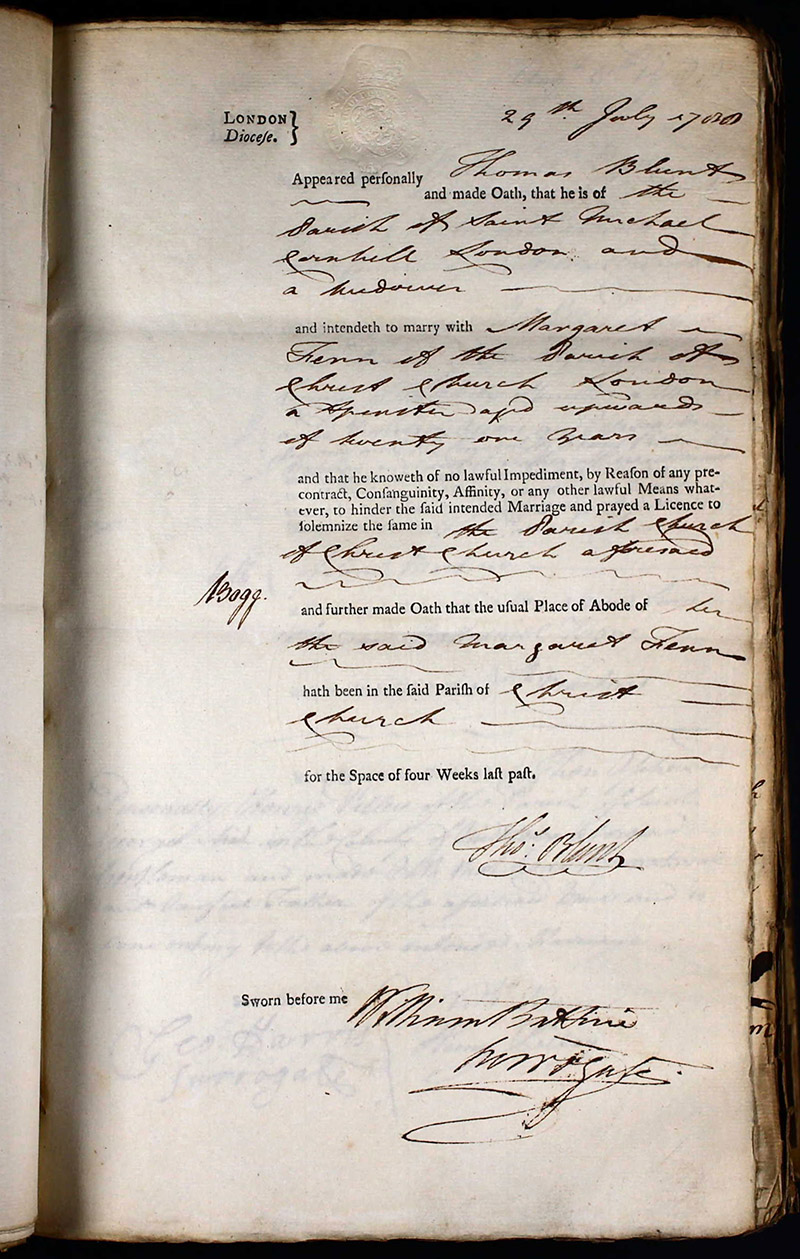 LONDON }
Diocese. }
29th July 1788
Appeared personally Thomas Blunt
and made Oath, that he is of the
Parish of Saint Michael
Cornhill London and
a widower
and intendeth to marry with Margaret
Fenn of the Parish of
Christ Church London
a spinster aged upwards
of twenty one Years
and that he knoweth of no lawful Impediment, by Reason of any pre-
contract, Consanguinity, Affinity, or any other lawful Means what-
ever, to hinder the said intended Marriage and prayed a Licence to
solemnize the same in the Parish Church
of Christ Church aforesaid
and further made Oath that the usual Place of Abode of her
the said Margaret Fenn
hath been in the said Parish of Christ
Church
for the Space of four Weeks last past.
Thos. Blunt
Sworn before me William Battine
Surrogate.
Geo Harris
Surrogate